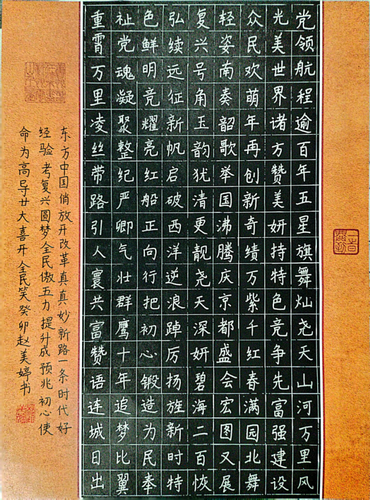 党领航程逾百年五星旗舞灿尧天山河万里风
光美世界诸方赞美妍持特色竞争先富强建设
众民欢萌年再创新奇绩万紫千红春满园北舞
轻姿南奏韶歌举国沸腾庆京都盛会宏图又展
复兴号角玉韵犹清更靓尧天深妍碧海二百恢
弘续远征新帆启破西洋逆浪踔厉扬旌新时特
色鲜明竞耀亮红船正向行把初心锻造为民奉
祉党魂凝聚整纪严卿气壮群鹰十年追梦比翼
重霄万里凌丝带路引人寰共富赞语连城日出
东方中国俏放开改革真真妙新路一条时代好
经验考复兴圆梦全民傲五力提升成预兆初心使
命为高导廿大喜开全民笑癸卯赵美娣书